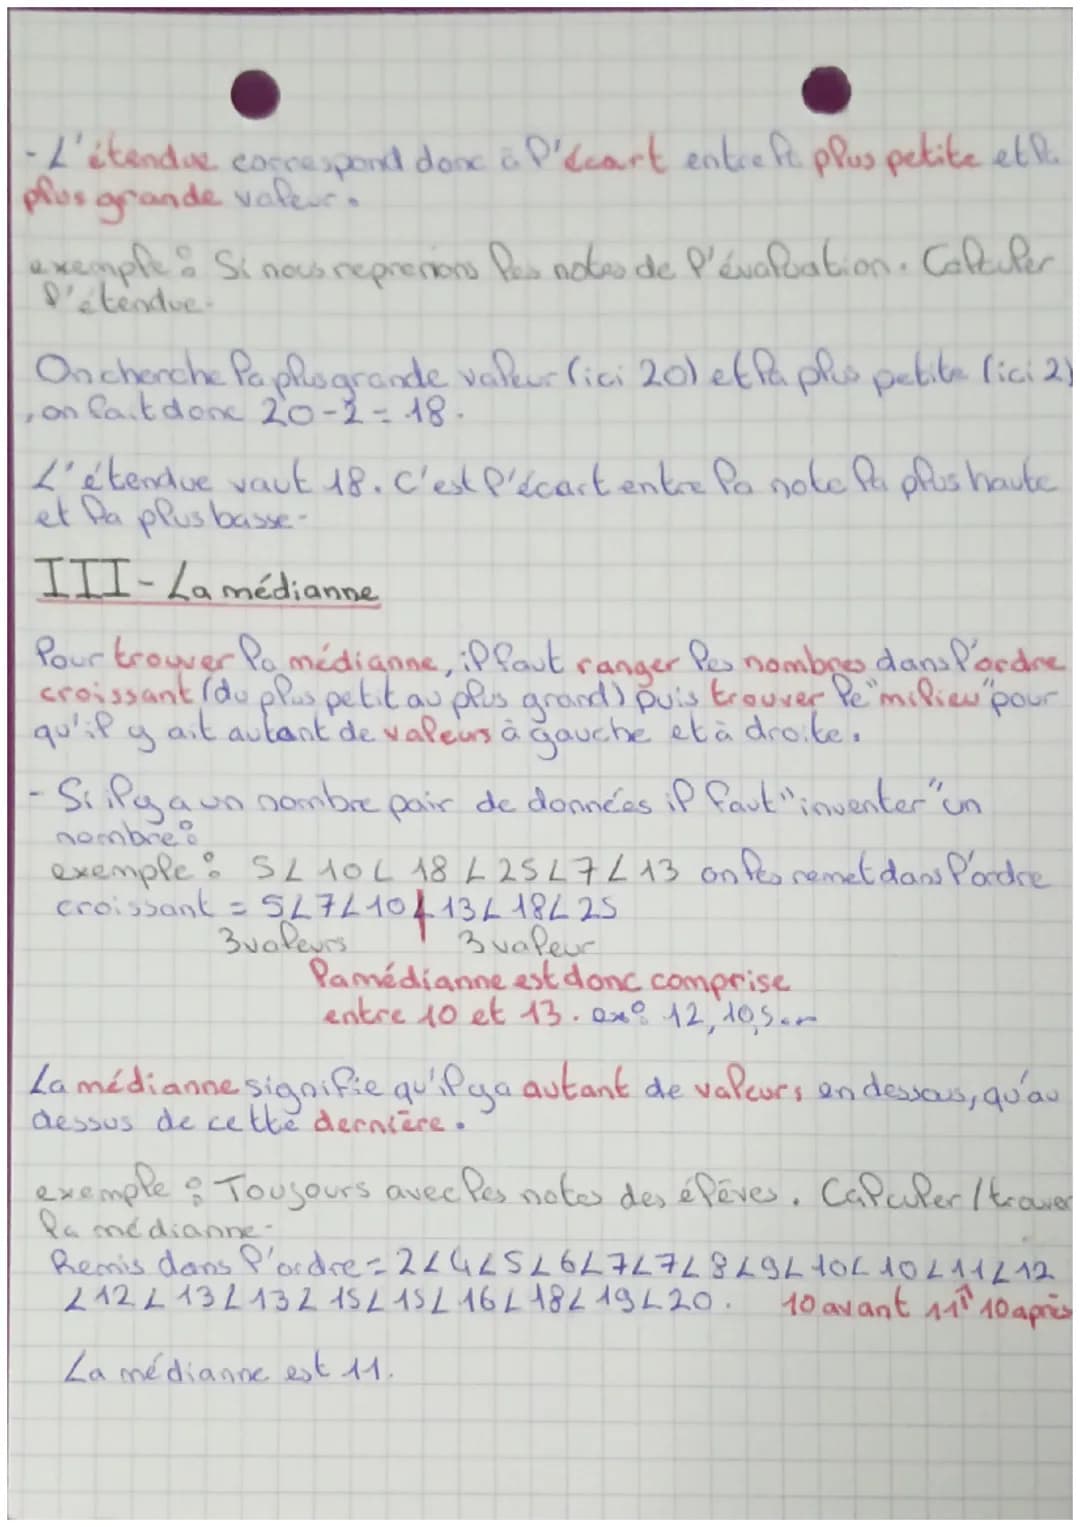 - L'étendue correspond donc à l'écart entre la plus petite et la
plus grande valeur.
exemple : Si nous reprenions les notes de l'évaluation. Calculer
l'étendue.
On cherche la plus grande valeur (ici 20) et la plus petite (ici 2)
, on fait donc 20-2 = 18.
L'étendue vaut 18. C'est l'écart entre la note la plus haute
et la plus basse.
III - La médianne
Pour trouver la médianne, il faut ranger les nombres dans l'ordre
croissant (du plus petit au plus grand) puis trouver le "milieu" pour
qu'il y ait autant de valeurs à gauche et à droite.
- Si il y a un nombre pair de données il faut "inventer" un
nombre :
exemple : 5 < 10 < 18 < 25 < 7 < 13 on les remet dans l'ordre
croissant = 5 < 7 < 10 < 13 < 18 < 25
3 valeurs 3 valeur
la médianne est donc comprise
entre 10 et 13. ex : 12, 10,5...
La médianne signifie qu'il y a autant de valeurs en dessous, qu'au
dessus de cette dernière.
exemple : Toujours avec les notes des élèves. Calculer / trouver
la médianne.
Remis dans l'ordre = 2 < 4 < 5 < 6 < 7 < 7 < 8 < 9 < 10 < 10 < 11 < 12
< 12 < 13 < 13 < 15 < 15 < 16 < 18 < 19 < 20. 10 avant 11 10 après
La médianne est 11.